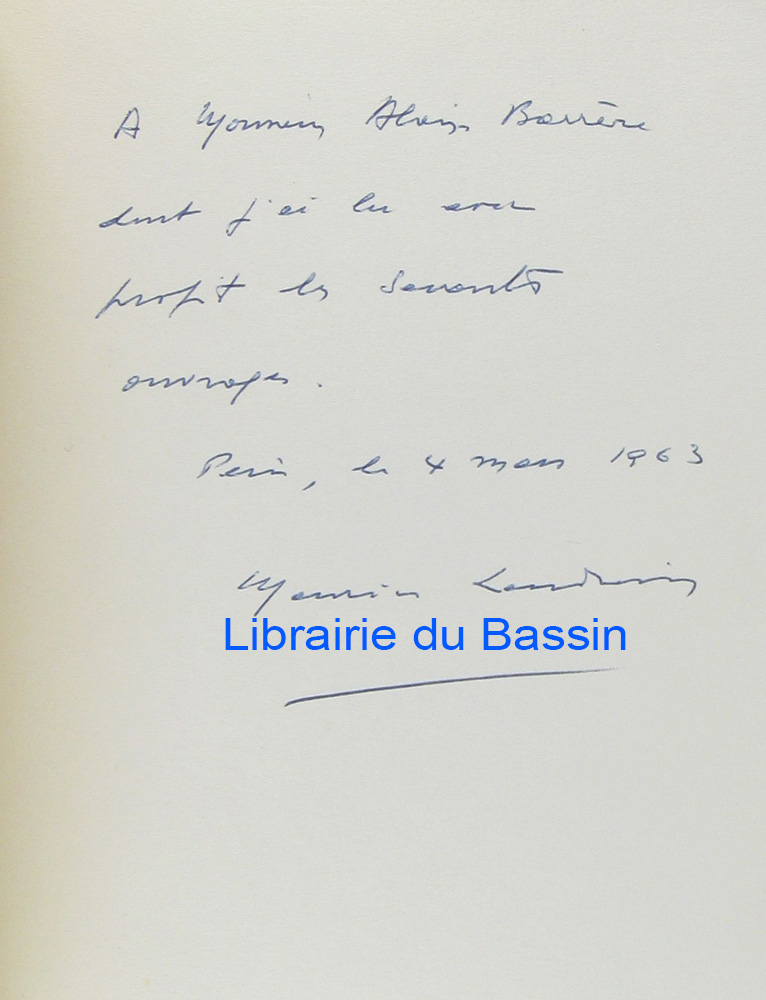 A Monsieur Alain Barrère
dont j'ai lu avec
profit les savants
ouvrages.
Paris, le 4 mars 1963
Maurice
Librairie du Bassin